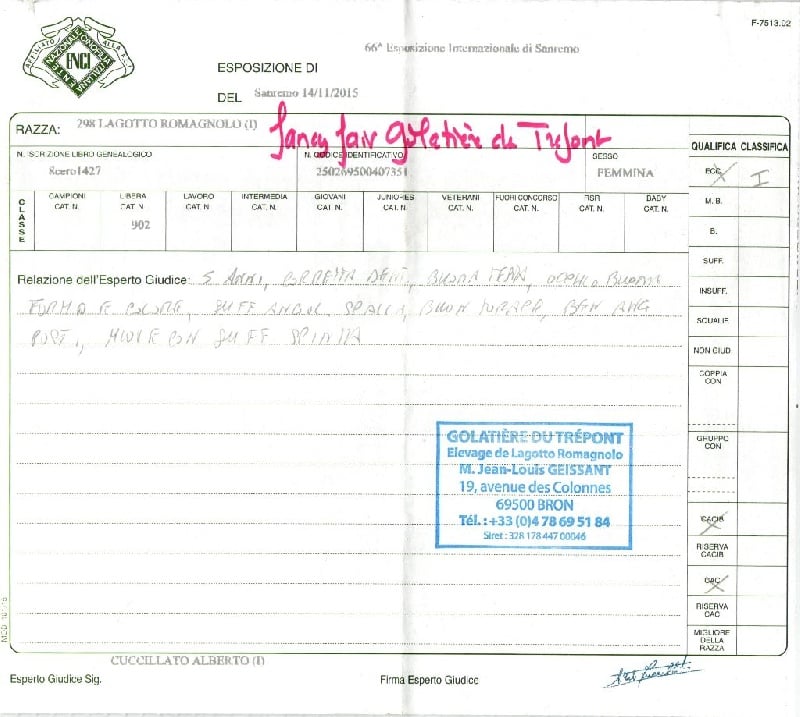 F-7513.02
AFFILIATO ALLA F.C.I.
ENTE NAZIONALE CINOFILIA ITALIANA
ENCI
66ª Esposizione Internazionale di Sanremo
ESPOSIZIONE DI
DEL Sanremo 14/11/2015
RAZZA: 298 LAGOTTO ROMAGNOLO (I)
Fancy fair Golatière du Trépont
N. ISCRIZIONE LIBRO GENEALOGICO
N. CODICE IDENTIFICATIVO
SESSO
8cero1427
250269500407351
FEMMINA
QUALIFICA CLASSIFICA
ECC. I
M.B.
B.
SUFF.
INSUFF.
SQUALIF.
NON GIUD.
COPPIA CON
GRUPPO CON
CACIB
RISERVA CACIB
CAC
RISERVA CAC
MIGLIORE DELLA RAZZA
CLASSE
CAMPIONI CAT. N.
LIBERA CAT. N.
LAVORO CAT. N.
INTERMEDIA CAT. N.
GIOVANI CAT. N.
JUNIORES CAT. N.
VETERANI CAT. N.
FUORI CONCORSO CAT. N.
RSR CAT. N.
BABY CAT. N.
902
Relazione dell'Esperto Giudice: 5 ANNI, CORRETTA DENT, BUONA
FORMA E COLORE, SUFF ANGOL SPALLA, BUON BEN ANG
POST., CON SUFF
GOLATIÈRE DU TRÉPONT
Elevage de Lagotto Romagnolo
M. Jean-Louis GEISSANT
19, avenue des Colonnes
69500 BRON
Tél. : +33 (0)4 78 69 51 84
Siret : 328 178 447 00046
CUCCILLATO ALBERTO (I)
Esperto Giudice Sig.
Firma Esperto Giudice